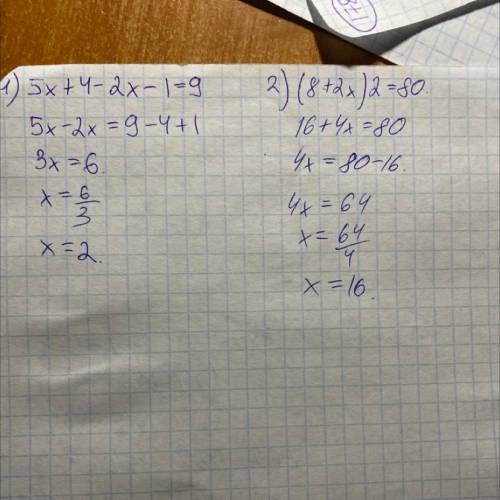 1) 5x+4-2x-1=9
5x-2x=9-4+1
3x=6.
x=6/3
x=2.
2) (8+2x)2=80.
16+4x=80
4x=80-16.
4x=64
x=64/4
x=16.